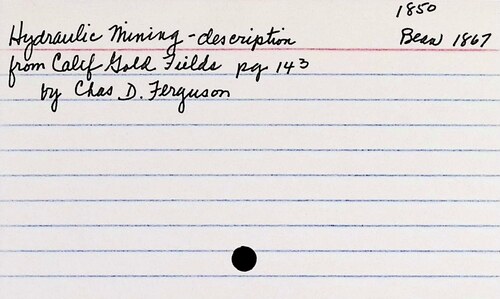 1850
Hydraulic Mining - description Bean 1867
from Calif Gold Fields pg 143
by Chas D. Ferguson